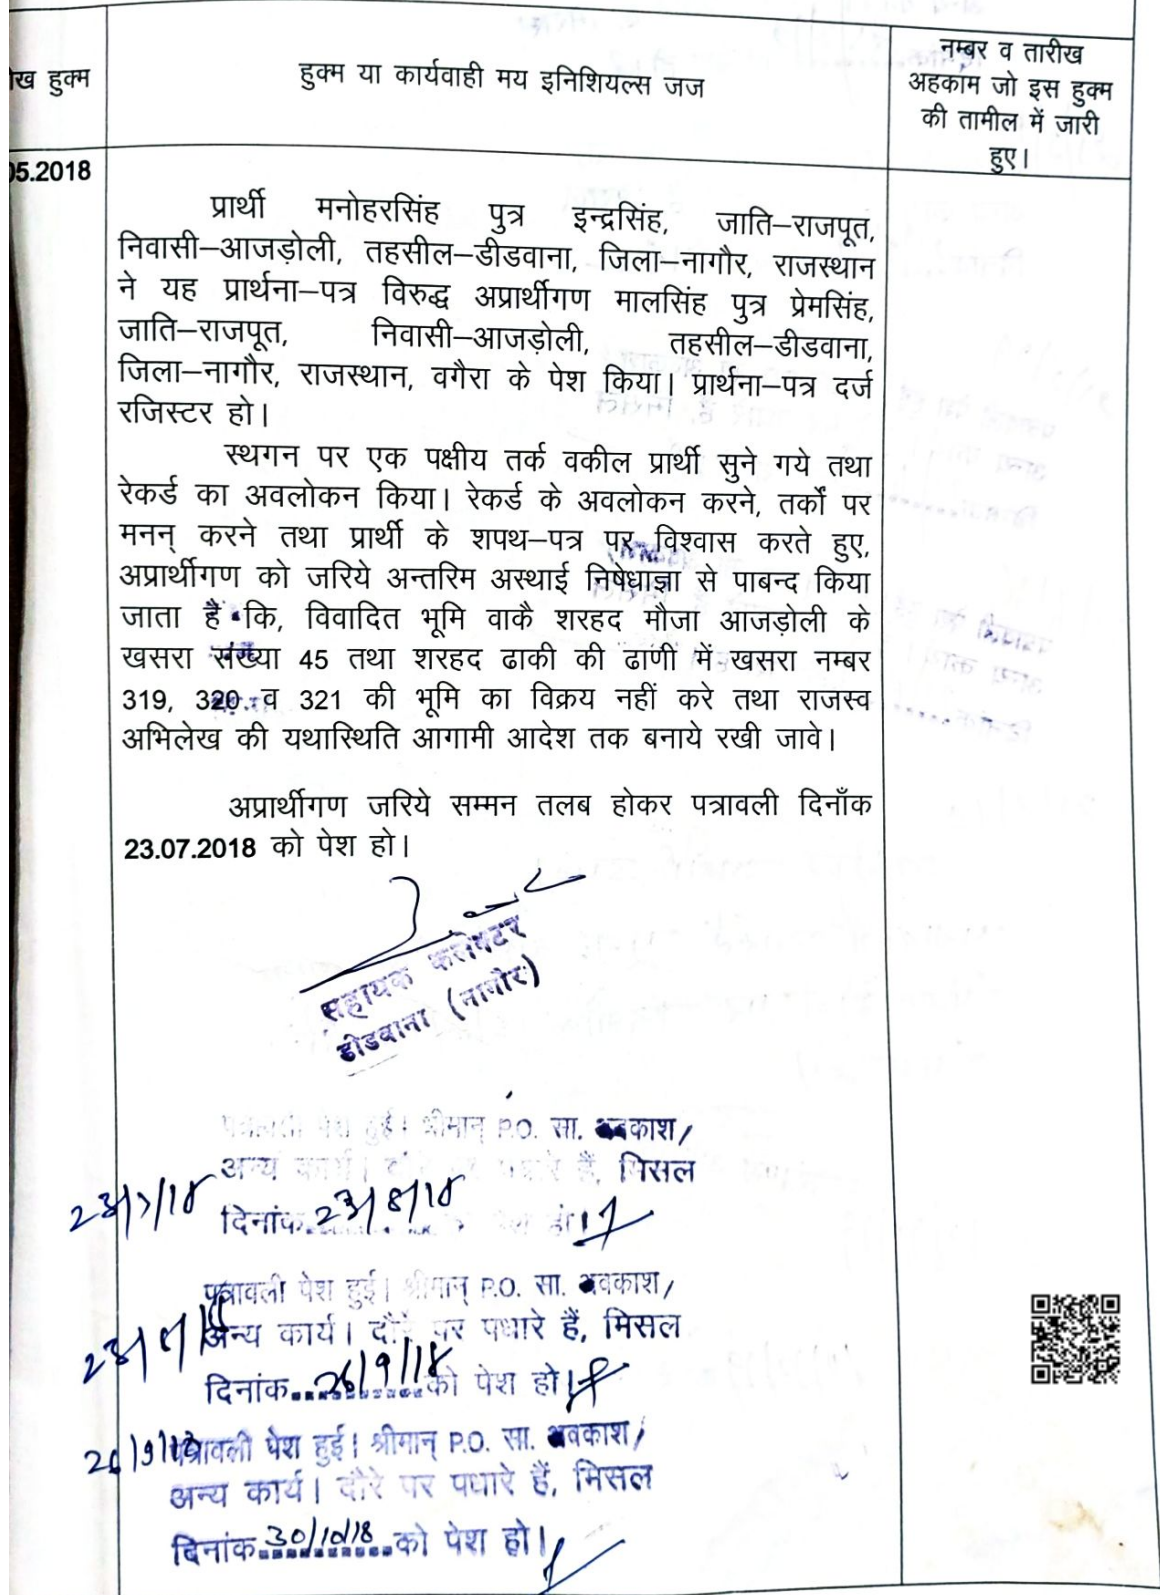 ख हुक्म
हुक्म या कार्यवाही मय इनिशियल्स जज
नम्बर व तारीख
अहकाम जो इस हुक्म
की तामील में जारी
हुए।
05.2018
प्रार्थी मनोहरसिंह पुत्र इन्द्रसिंह, जाति–राजपूत,
निवासी–आजड़ोली, तहसील–डीडवाना, जिला–नागौर, राजस्थान
ने यह प्रार्थना–पत्र विरुद्ध अप्रार्थीगण मालसिंह पुत्र प्रेमसिंह,
जाति–राजपूत, निवासी–आजड़ोली, तहसील–डीडवाना,
जिला–नागौर, राजस्थान, वगैरा के पेश किया। प्रार्थना–पत्र दर्ज
रजिस्टर हो।
स्थगन पर एक पक्षीय तर्क वकील प्रार्थी सुने गये तथा
रेकर्ड का अवलोकन किया। रेकर्ड के अवलोकन करने, तर्कों पर
मनन् करने तथा प्रार्थी के शपथ–पत्र पर विश्वास करते हुए,
अप्रार्थीगण को जरिये अन्तरिम अस्थाई निषेधाज्ञा से पाबन्द किया
जाता है कि, विवादित भूमि वाकै शरहद मौजा आजड़ोली के
खसरा संख्या 45 तथा शरहद ढाकी की ढाणी में खसरा नम्बर
319, 320 व 321 की भूमि का विक्रय नहीं करे तथा राजस्व
अभिलेख की यथास्थिति आगामी आदेश तक बनाये रखी जावे।
अप्रार्थीगण जरिये सम्मन तलब होकर पत्रावली दिनाँक
23.07.2018 को पेश हो।
सहायक कलेक्टर
डीडवाना (नागौर)
पत्रावली पेश हुई। श्रीमान् P.O. सा. अवकाश/
अन्य कार्य। दौरे पर पधारे हैं, मिसल
23/7/18 दिनांक 23/8/18 को पेश हो।
पत्रावली पेश हुई। श्रीमान् P.O. सा. अवकाश/
अन्य कार्य। दौरे पर पधारे हैं, मिसल
23/8/18
दिनांक 26/9/18 को पेश हो।
26/9/18 पत्रावली पेश हुई। श्रीमान् P.O. सा. अवकाश/
अन्य कार्य। दौरे पर पधारे हैं, मिसल
दिनांक 30/10/18 को पेश हो।